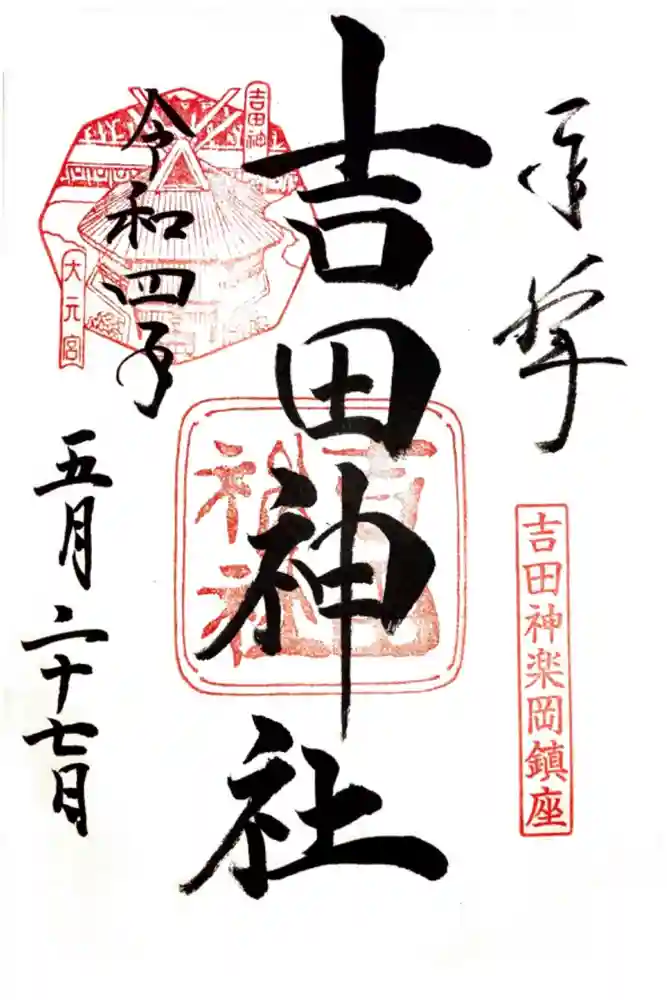 奉拝
吉田神楽岡鎮座
吉田神社
吉田神社
吉田神
大元宮
令和四年
五月二十七日